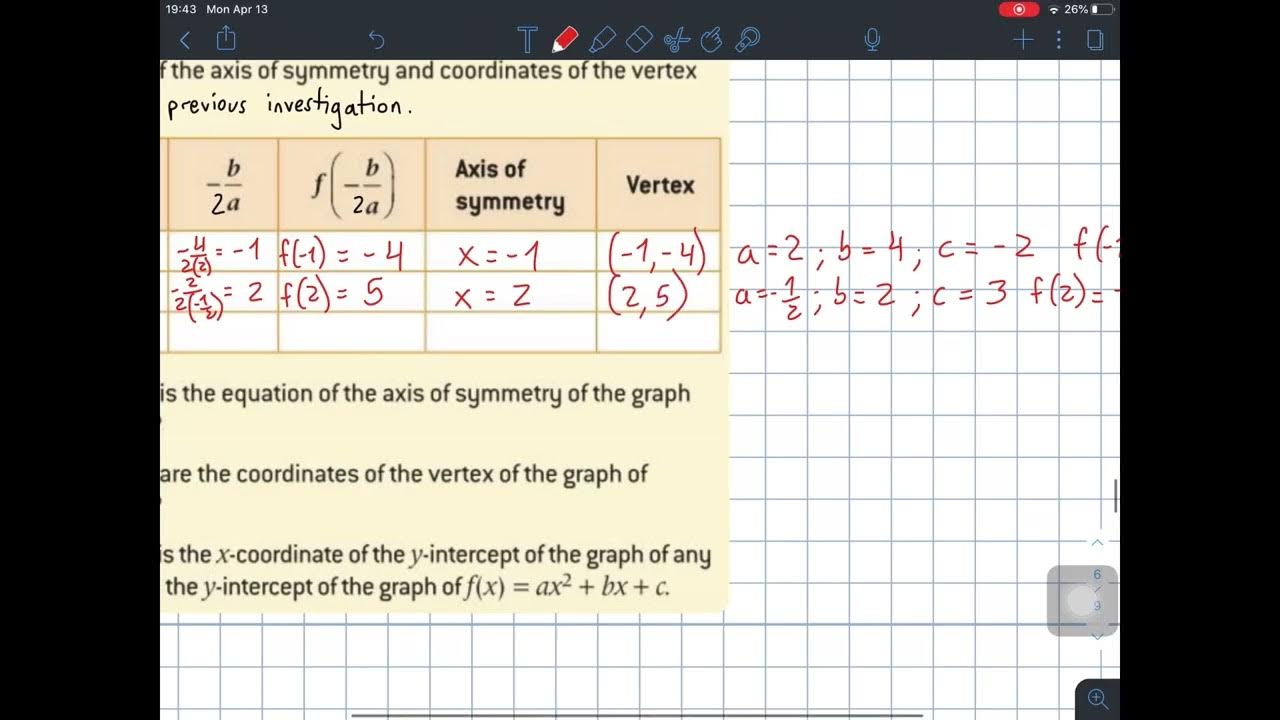 19:43 Mon Apr 13
26%
f the axis of symmetry and coordinates of the vertex
previous investigation.
-b/2a f(-b/2a) Axis of symmetry Vertex
-4/2(2) = -1 f(-1) = -4 x = -1 (-1, -4) a = 2 ; b = 4 ; c = -2 f(-1
-2/2(-1/2) = 2 f(2) = 5 x = 2 (2, 5) a = -1/2 ; b = 2 ; c = 3 f(2) = -
is the equation of the axis of symmetry of the graph
are the coordinates of the vertex of the graph of
is the x-coordinate of the y-intercept of the graph of any
the y-intercept of the graph of f(x) = ax² + bx + c.
6
9